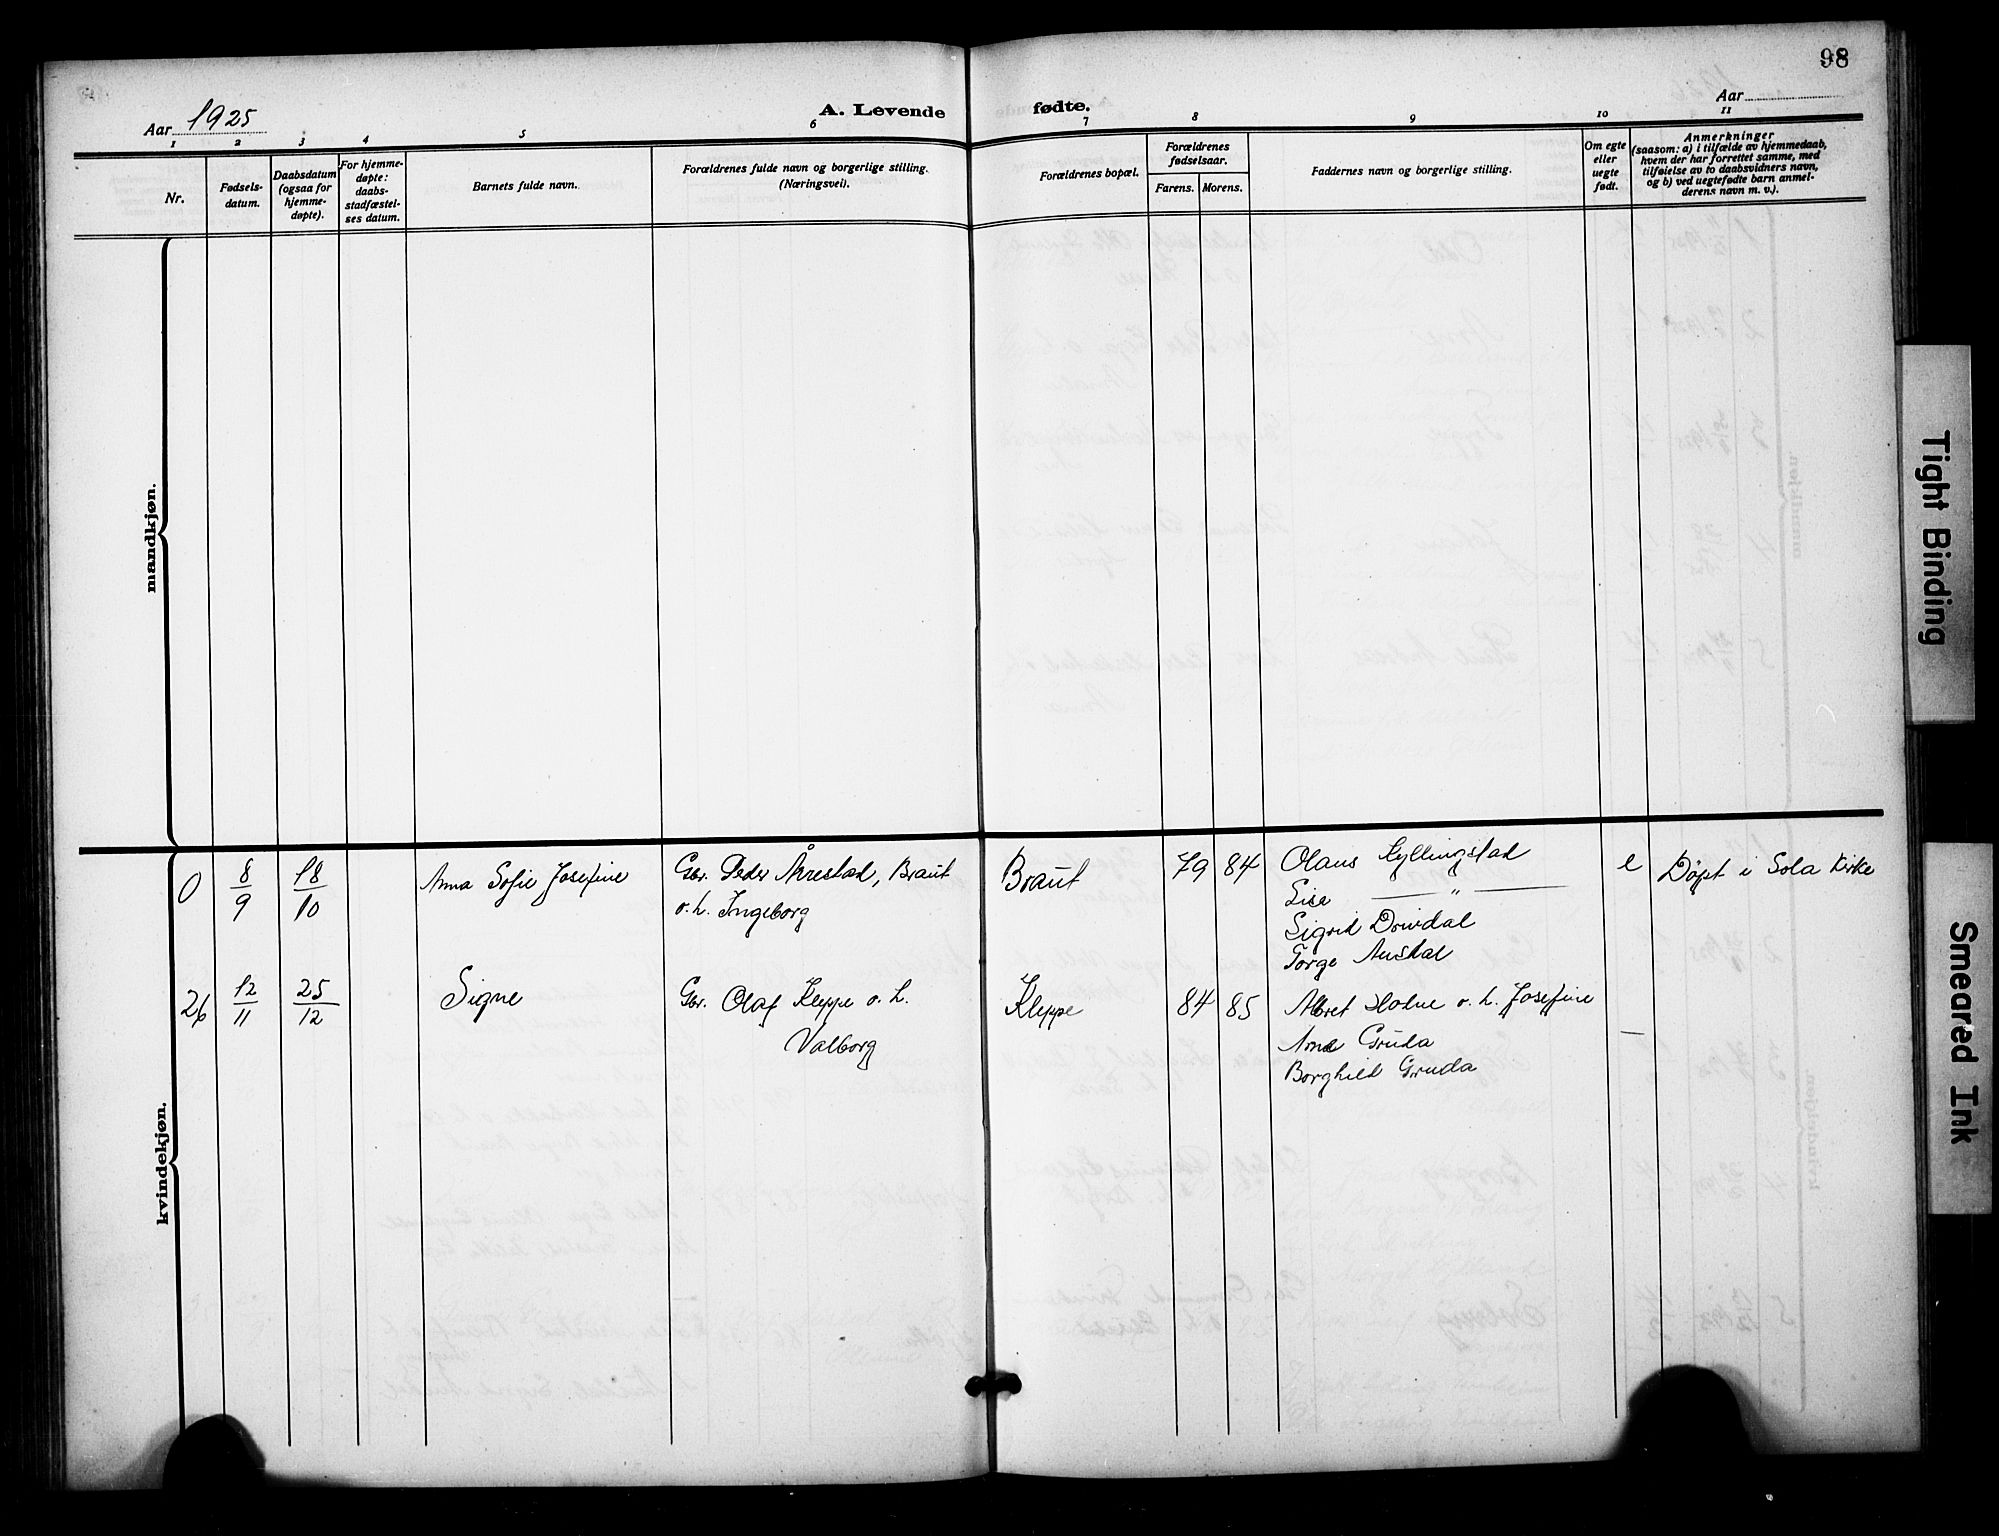 98
Aar 1925
A. Levende fødte.
Aar
1 2 3 4 5 6 7 8 9 10 11
Nr.
Fødsels-
datum.
Daabsdatum
(ogsaa for
hjemme-
døpte).
For hjemme-
døpte:
daabs-
stadfæstel-
ses datum.
Barnets fulde navn.
Forældrenes fulde navn og borgerlige stilling.
(Næringsvei).
Forældrenes bopæl.
Forældrenes
fødselsaar.
Farens. Morens.
Faddernes navn og borgerlige stilling.
Om egte
eller
uegte
født.
Anmerkninger
(saasom: a) i tilfælde av hjemmedaab,
hvem der har forrettet samme, med
tilføielse av to daabsvidners navn,
og b) ved uegtefødte barn anmel-
derens navn m. v.).
mandkjøn.
kvindekjøn.
0 8/9 18/10 Anna Sofie Josefine Gbr. Peder Årrestad, Braut Braut 79 84 Olaus Kyllingstad e Døpt i Sola kirke
o. h. Ingeborg Lise — " —
Sigrid
Torge Austad
26 12/11 25/12 Signe Gbr. Olaf Kleppe o. h. Kleppe 84 85 Albret o. h. Josefine —
Valborg Arne Gruda
Borghild Gruda
Tight Binding
Smeared Ink